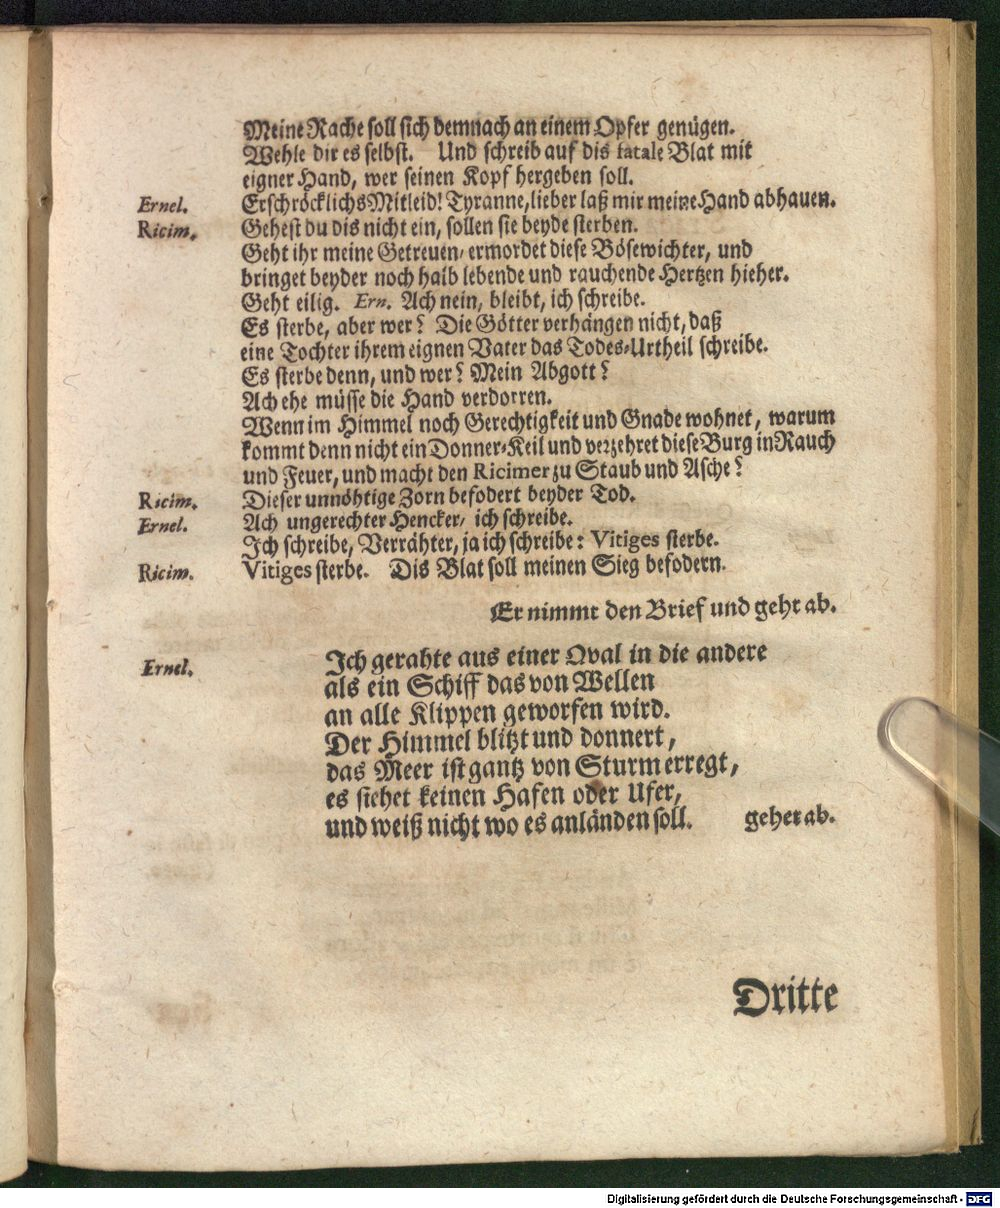 Meine Rache soll sich demnach an einem Opfer genügen.
Wehle dir es selbst. Und schreib auf dis fatale Blat mit
eigner Hand, wer seinen Kopf hergeben soll.
Ernel. Erschröcklichs Mitleid! Tyranne, lieber laß mir meine Hand abhauen.
Ricim. Gehest du dis nicht ein, sollen sie beyde sterben.
Geht ihr meine Getreuen/ ermordet diese Bösewichter, und
bringet beyder noch halb lebende und rauchende Hertzen hieher.
Geht eilig. Ern. Ach nein, bleibt, ich schreibe.
Es sterbe, aber wer? Die Götter verhängen nicht, daß
eine Tochter ihrem eignen Vater das Todes-Urtheil schreibe.
Es sterbe denn, und wer? Mein Abgott?
Ach ehe müsse die Hand verdorren.
Wenn im Himmel noch Gerechtigkeit und Gnade wohnet, warum
kommt denn nicht ein Donner-Keil und verzehret diese Burg in Rauch
und Feuer, und macht den Ricimer zu Staub und Asche?
Ricim. Dieser unnöhtige Zorn befodert beyder Tod.
Ernel. Ach ungerechter Hencker/ ich schreibe.
Ich schreibe, Verrähter, ja ich schreibe: Vitiges sterbe.
Ricim. Vitiges sterbe. Dis Blat soll meinen Sieg befodern.
Er nimmt den Brief und geht ab.
Ernel. Ich gerahte aus einer Qval in die andere
als ein Schiff das von Wellen
an alle Klippen geworfen wird.
Der Himmel blitzt und donnert,
das Meer ist gantz von Sturm erregt,
es siehet keinen Hafen oder Ufer,
und weiß nicht wo es anländen soll. gehet ab.
Dritte
Digitalisierung gefördert durch die Deutsche Forschungsgemeinschaft - DFG